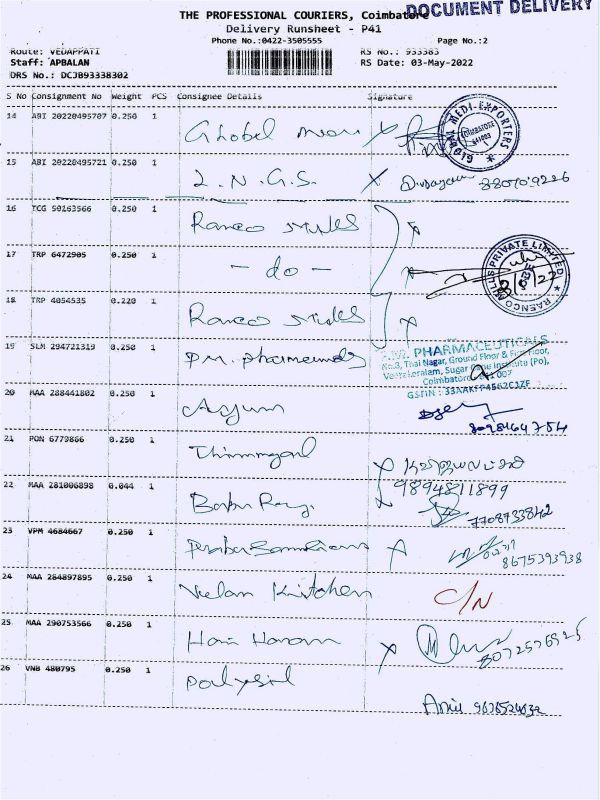 DOCUMENT DELIVERY
THE PROFESSIONAL COURIERS, Coimbatore
Delivery Runsheet - P41
Phone No.:0422-3505555 Page No.:2
Route: VEDAPPATI RS No.: 933383
Staff: APBALAN RS Date: 03-May-2022
DRS No.: DCJB93338302
S No Consignment No Weight PCS Consignee Details Signature
14 ABI 20220495707 0.250 1 Glhobel
MEDI EXPORTERS
COIMBATORE
641003
15 ABI 20220495721 0.250 1 L.N.G.S.
16 TCG 50163566 0.250 1 Ranco Mills
17 TRP 6472905 0.250 1 - do -
RAENCO MILLS PRIVATE LIMITED
18 TRP 4054535 0.220 1 Ranco Mills
19 SLM 294721319 0.250 1 P.M. Pharmceuticals
PHARMACEUTICALS
No.3, Thai Nagar, Ground Floor & First Floor,
Veerakeralam, Sugar Cane Institute (Po),
Coimbatore 007
20 MAA 288441802 0.250 1
8098164754
21 PON 6779866 0.250 1
9894811899
22 MAA 281006898 0.044 1 Babu Raj
7708733842
23 VPM 4684667 0.250 1
8675393938
24 MAA 284897895 0.250 1 Velan Kitchen C/N
25 MAA 290753566 0.250 1 Hari Haran
8072576925
26 VNB 480795 0.250 1 Polysil